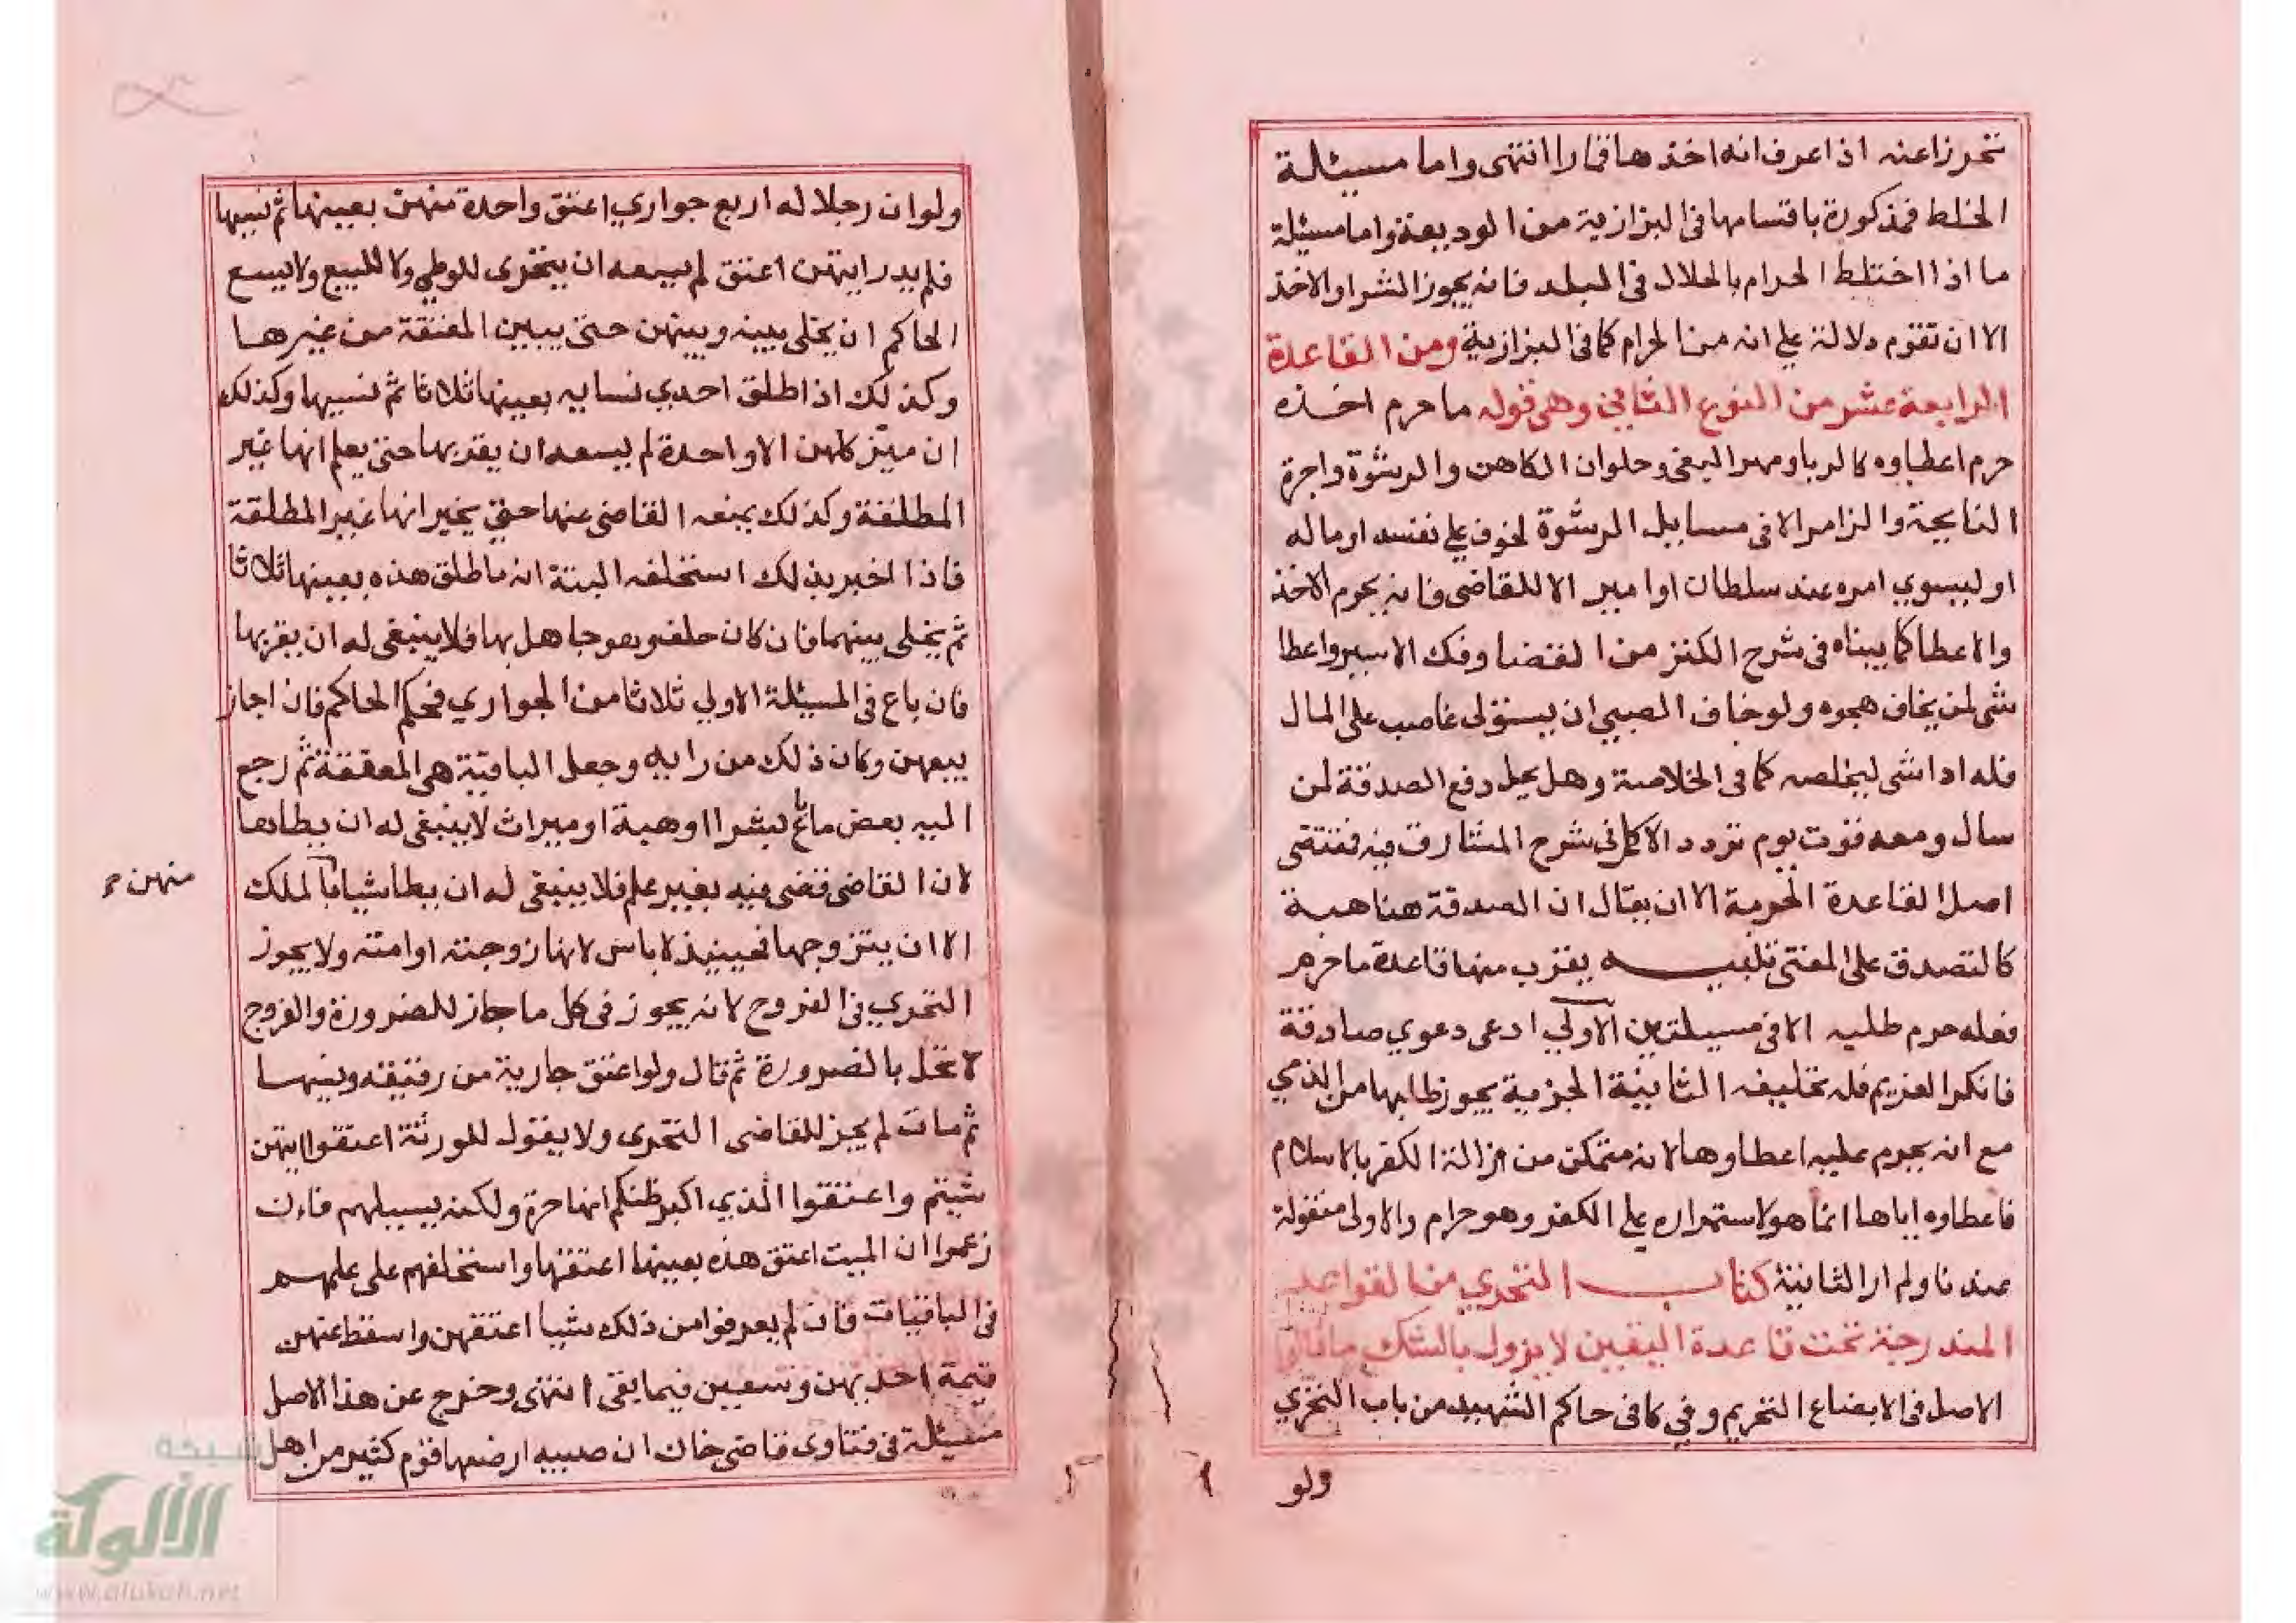 تحرزا عنه اذا عرف انه اخذها قمارا انتهى واما مسيئلة
الخلط فمذكورة باقسامها فى البزازية من الوديعة واما مسيئلة
ما اذا اختلط الحرام بالحلال فى البلد فانه يجوز الشرا والاخذ
الا ان تقوم دلالة على انه من الحرام كما فى البزازية ومن القاعدة
الرابعة عشر من النوع الثاني وهى قوله ما حرم اخذه
حرم اعطاوه كالربا ومهر البغى وحلوان الكاهن والرشوة واجرة
النايحة والزامر الا فى مسايل الرشوة لخوف على نفسه او ماله
او ليسوي امره عند سلطان او امير الا للقاضى فانه يحرم الاخذ
والاعطا كما بيناه فى شرح الكنز من القضا وفك الاسير واعطا
شى لمن يخاف هجوه ولو خاف الصبي ان يستولى غاصب على المال
فله اداشى ليخلصه كما فى الخلاصة وهل يحل دفع الصدقة لمن
سال ومعه قوت يوم تردد الاكمل فى شرح المشارق فيه فمقتضى
اصل القاعدة الحرمة الا ان يقال ان الصدقة هنا هبة
كالتصدق على الغنى تنبيه يقرب منها قاعدة ما حرم
فعله حرم طلبه الا فى مسيلتين الاولي ادعى دعوي صادقة
فانكر الغريم فله تحليفه الثانية الجزية يجوز طلبها من الذمي
مع انه يحرم عليه اعطاوها لانه متمكن من ازالة الكفر بالاسلام
فاعطاوه اياها انما هو لاستمراره على الكفر وهو حرام والاولى منقولة
عندنا ولم ار الثانية كتاب التحري من القواعد
المندرجة تحت قاعدة اليقين لا يزول بالشك ما قالوا
الاصل فى الابضاع التحريم وفي كافى حاكم الشهيد من باب التحري
ولو
ولو ان رجلا له اربع جواري اعتق واحدة منهن بعينها ثم نسيها
فلم يدر ايتهن اعتق لم يسعه ان يتحرى للوطي ولا للبيع ولا يسع
الحاكم ان يخلى بينه وبينهن حتى يبين المعتقة من غيرها
وكذلك اذا طلق احدي نسايه بعينها ثلاثا ثم نسيها وكذلك
ان ميز كلهن الا واحدة لم يسعه ان يقربها حتى يعلم انها غير
المطلقة وكذلك يمنعه القاضى عنها حتى يخبر انها غير المطلقة
فاذا اخبر بذلك استحلفه البتة انه ما طلق هذه بعينها ثلاثا
ثم يخلى بينهما فان كان حلف وهو جاهل بها فلا ينبغى له ان يقربها
فان باع فى المسيئلة الاولي ثلاثا من الجواري فحكم الحاكم فان اجاز
بيعهن وكان ذلك من رايه وجعل الباقية هى المعتقة ثم رجع
اليه بعض ما باع بشرا او هبة او ميراث لا ينبغى له ان يطاها
لان القاضى قضى فيه بغير علم فلا ينبغى له ان يطا شيا بالملك
منهن
الا ان يتزوجها فحينيذ لا باس لانها زوجته او امته ولا يجوز
التحري فى الفروج لانه يجوز فى كل ما جاز للضرورة والفروج
لا تحل بالضرورة ثم قال ولو اعتق جارية من رقيقه ونسيها
ثم مات لم يجز للقاضى التحرى ولا يقول للورثة اعتقوا ايتهن
شيتم واعتقوا الذي اكبر ظنكم انها حرة ولكنه يسيلهم فان
زعموا ان الميت اعتق هذه بعينها اعتقها واستحلفهم على علمهم
فى الباقيات فان لم يعرفوا من ذلك شيا اعتقهن واسقط عنهن
قيمة احديهن وسعين فيما بقى انتهى وخرج عن هذا الاصل
مسيئلة فى فتاوى قاضى خان ان صبيه ارضعها قوم كثير من اهل
شبكة
الألوكة
www.alukah.net